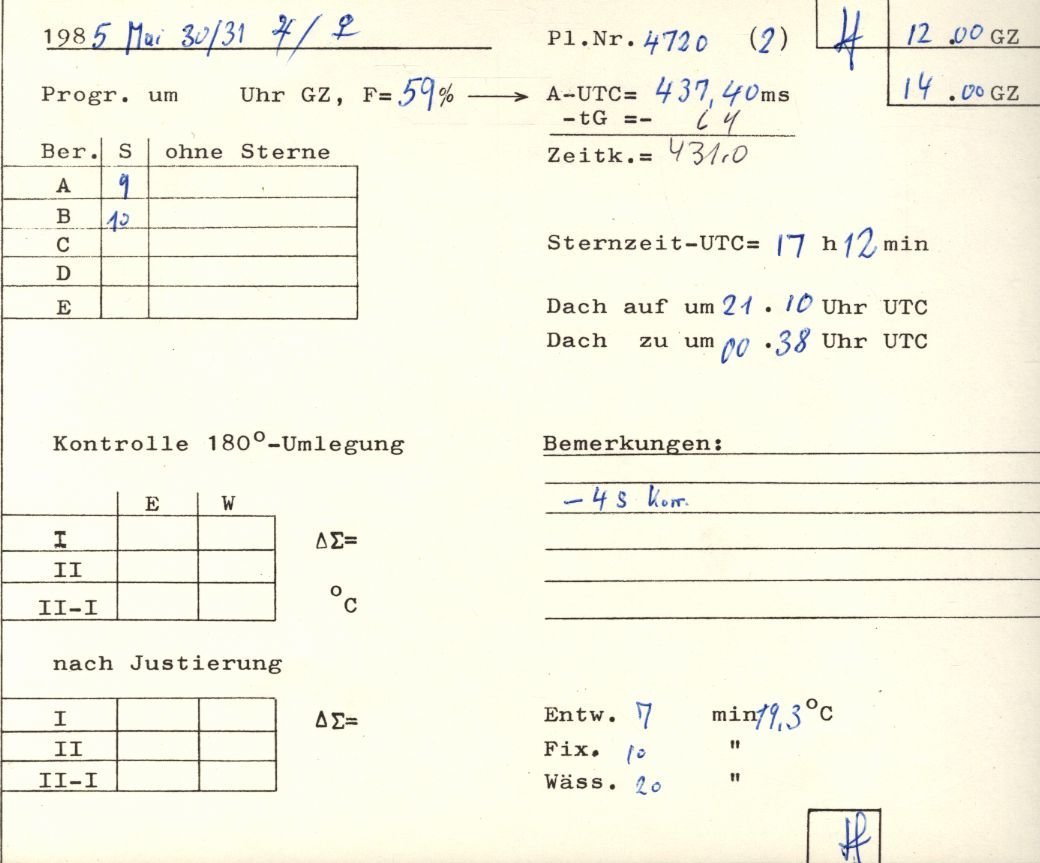 1985 Mai 30/31 ♃/♀
Pl.Nr. 4720 (2)
12.00 GZ
Progr. um Uhr GZ, F=59% → A-UTC= 437,40ms
14.00 GZ
-tG =- 64
Zeitk.= 431.0
Ber. S ohne Sterne
A 9
B 10
C
D
E
Sternzeit-UTC= 17 h 12 min
Dach auf um 21.10 Uhr UTC
Dach zu um 00.38 Uhr UTC
Kontrolle 180°-Umlegung
Bemerkungen:
E W
-4 s Korr.
I ΔΣ=
II
II-I °C
nach Justierung
I ΔΣ=
II
II-I
Entw. 7 min 19,3°C
Fix. 10 "
Wäss. 20 "